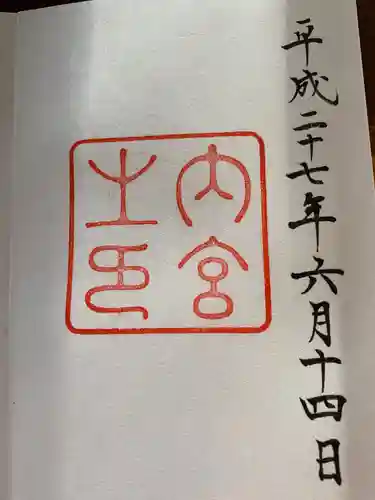 平成二十七年六月十四日
内宮
之印